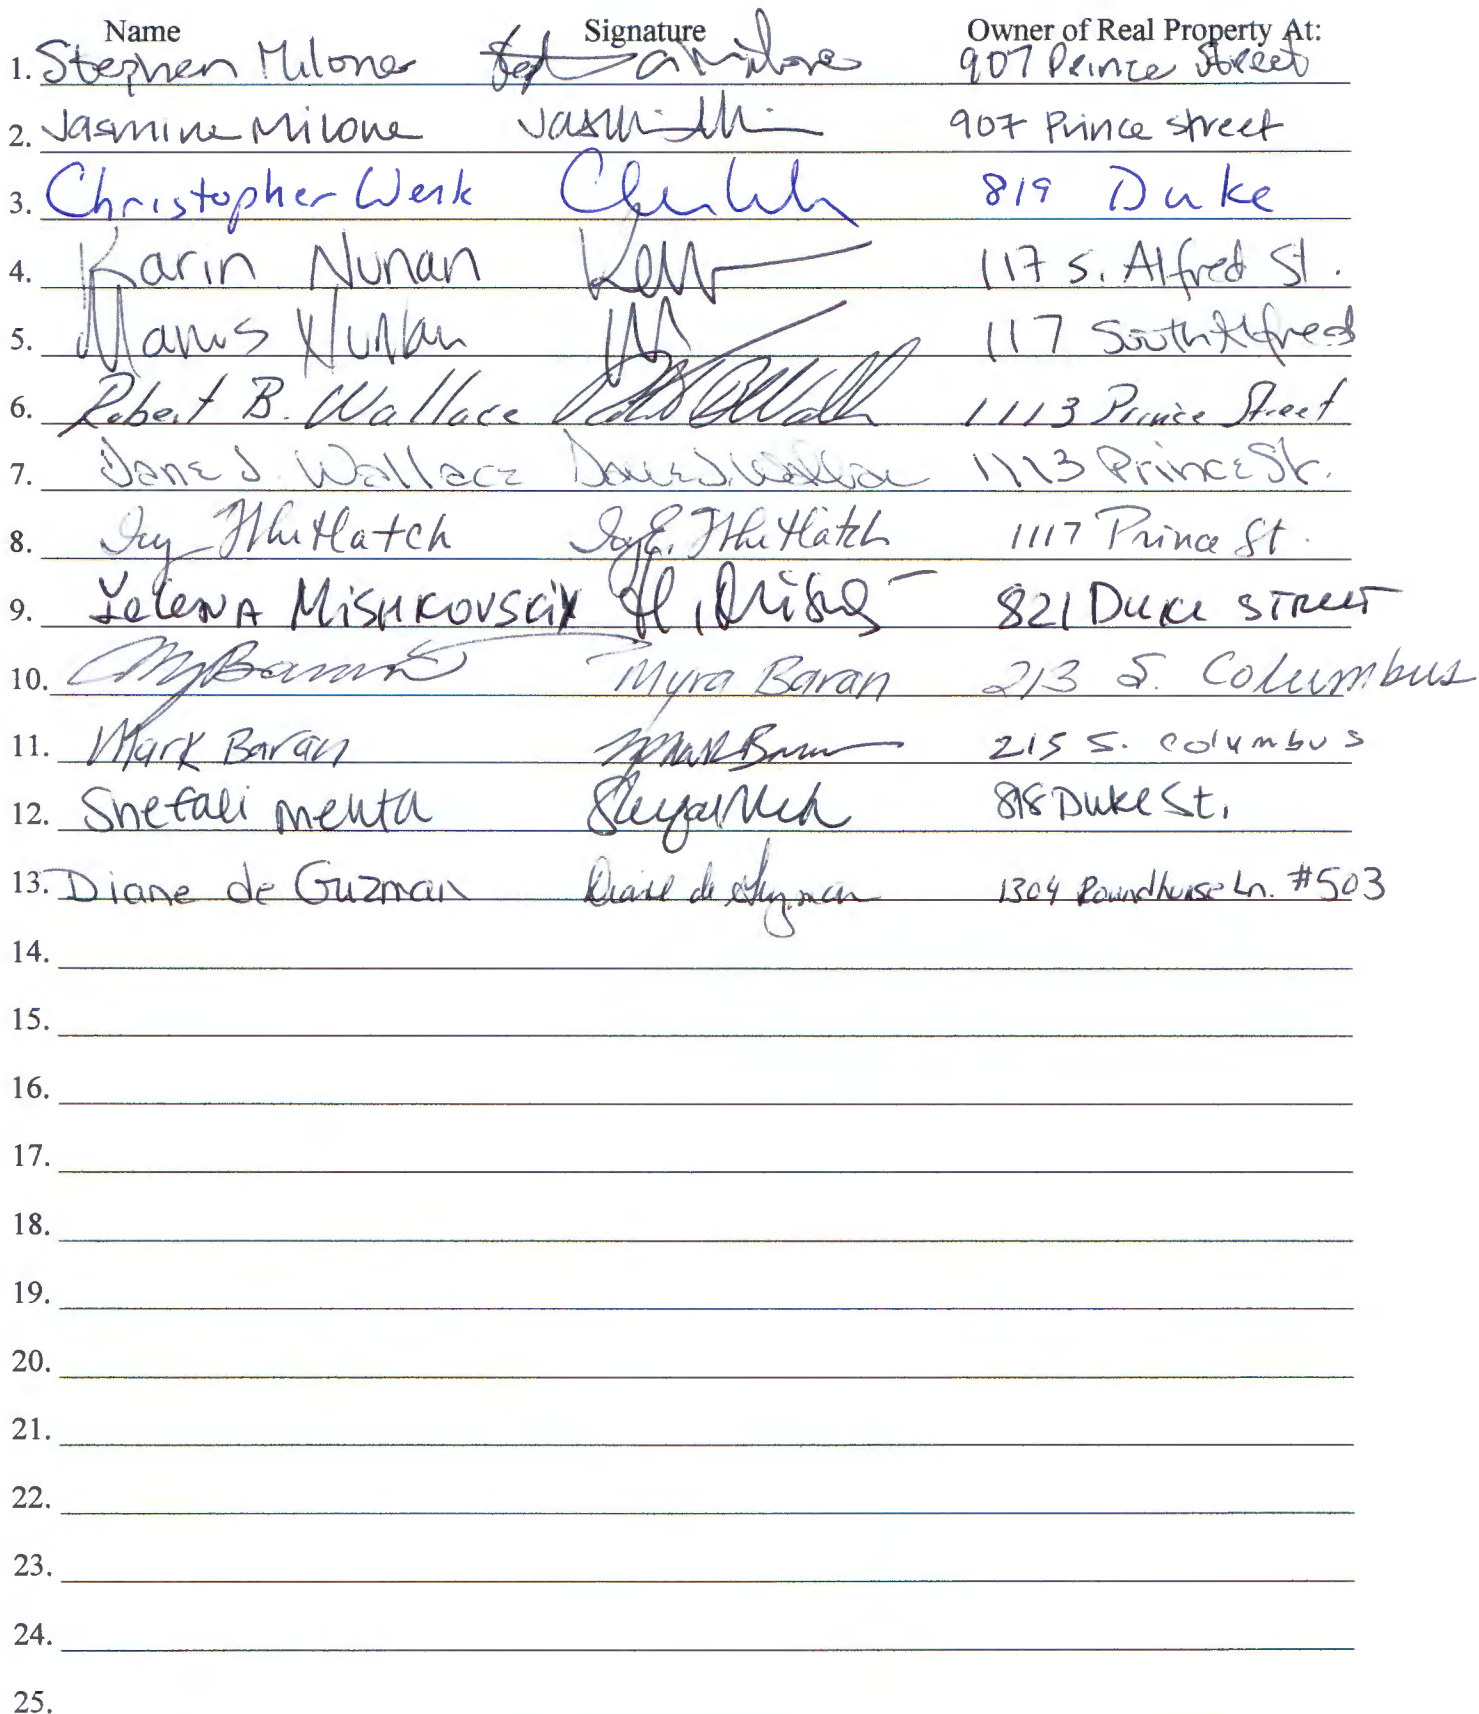 Name Signature Owner of Real Property At:
1. Stephen Milone 907 Prince Street
2. Jasmine Milone 907 Prince street
3. Christopher Wenk 819 Duke
4. Karin Nunan 117 S. Alfred St.
5. Manus Nunan 117 South Alfred
6. Robert B. Wallace 1113 Prince Street
7. Jane J. Wallace Jane J. Wallace 1113 Prince St.
8. Ivy Whitlatch Ivy E. Whitlatch 1117 Prince St.
9. Jelena Mishkovskiy 821 Duke Street
10. Myra Baran 213 S. Columbus
11. Mark Baran Mark Baran 215 S. Columbus
12. Shefali Mehta 818 Duke St.
13. Diane de Guzman Diane de Guzman 1304 Roundhouse Ln. #503
14.
15.
16.
17.
18.
19.
20.
21.
22.
23.
24.
25.